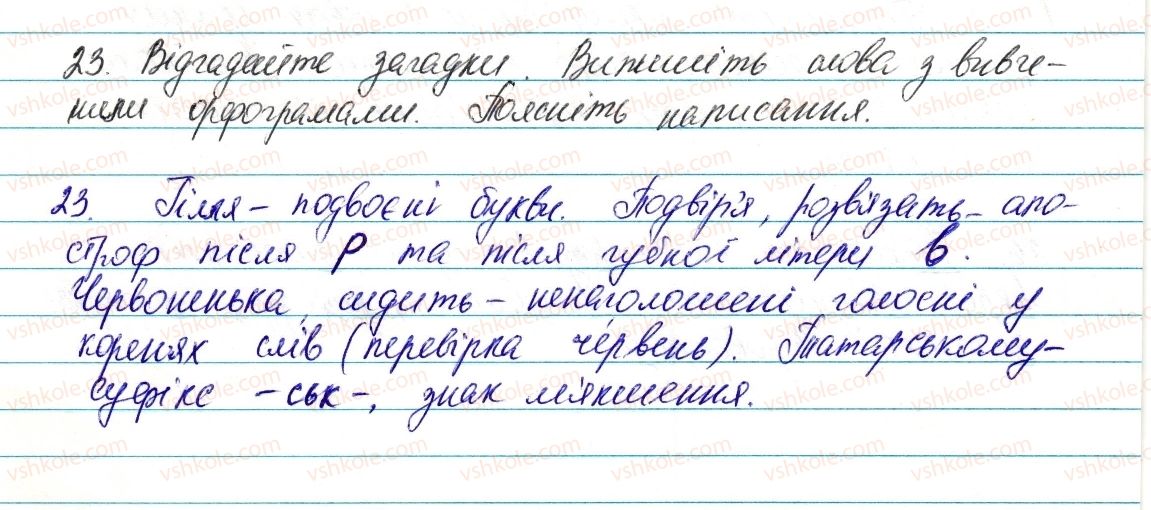 23. Відгадайте загадки. Випишіть слова з вивче-
ними орфограмами. Поясніть написання.
23. Гілля – подвоєні букви. Подвір'я, розв'язать – апо-
строф після р та після губної літери в.
Червоненька, сидить – ненаголошені голосні у
коренях слів (перевірка че́рвень). Татарському –
суфікс -ськ-, знак м'якшення.